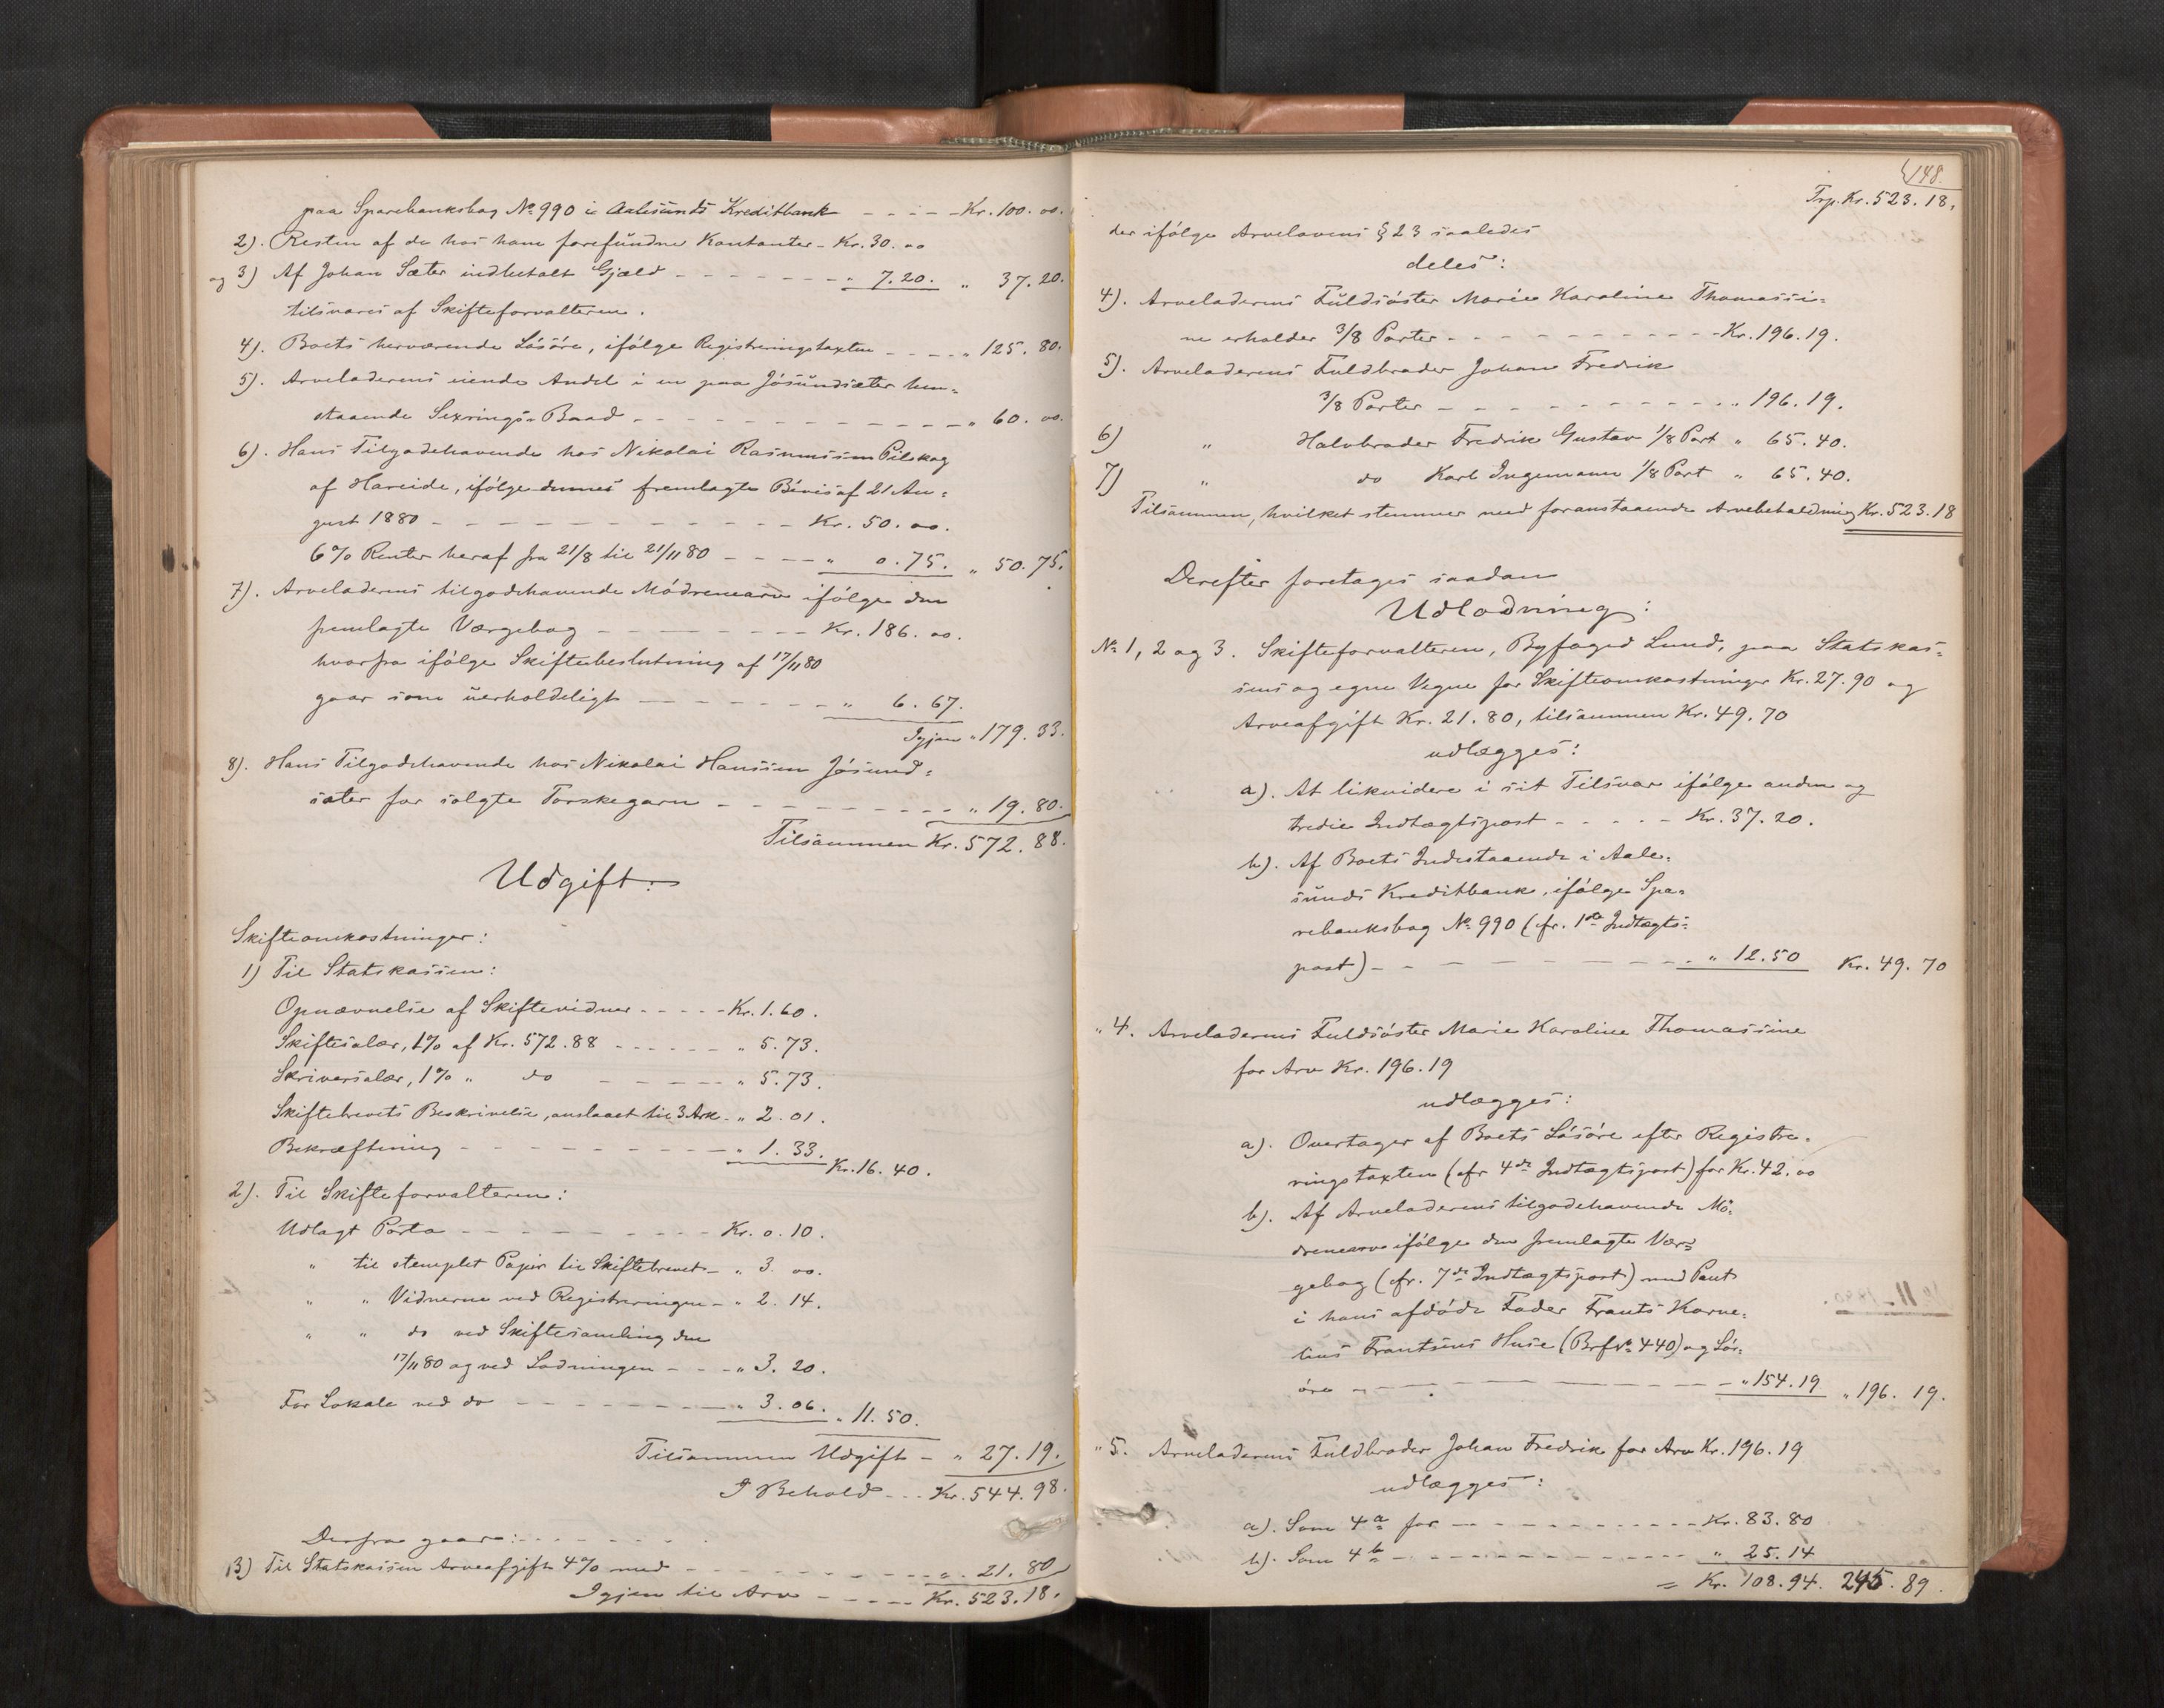 paa Sparebanksbog No 990 i Aalesunds Kreditbank - - - - Kr. 100. 00.
2). Resten af de hos ham forefundne Kontanter - Kr. 30. 00
og 3) Af Johan Sæter indbetalt Gjæld - - - - - - - " 7. 20. " 37. 20.
tilsvares af Skifteforvalteren.
4). Boets herværende Løsøre, ifølge Registreringstaxten - - - - " 125. 80.
5). Arveladerens eiende Andel i en paa Jøsundsæter hen=
staaende Sexrings-Baad - - - - - - - - - - " 60. 00.
6). Hans Tilgodehavende hos Nikolai Rasmussen Pilskog
af Hareide, ifølge dennes fremlagte Bevis af 21 Au=
gust 1880 - - - - - - - - - - Kr. 50. 00.
6% Renter heraf fra 21/8 til 21/11 80 - - - - " 0. 75. " 50. 75.
7). Arveladerens tilgodehavende Mødrenearv ifølge den
fremlagte Værgebog - - - - - - - - Kr. 186. 00.
hvorfra ifølge Skiftebeslutning af 17/11 80
gaar som uerholdeligt - - - - - - - " 6. 67.
Igjen " 179. 33.
8). Hans Tilgodehavende hos Nikolai Hanssen Jøsund=
sæter for solgte Torskegarn - - - - - - - - - " 19. 80.
Tilsammen Kr. 572. 88.
Udgift:
Skifteomkostninger:
1) Til Statskassen:
Opnævnelse af Skiftevidner - - - - - Kr. 1. 60.
Skiftesalær, 1% af Kr. 572. 88 - - - - - - " 5. 73.
Skriversalær, 1% " do - - - - - " 5. 73.
Skiftebrevets Beskrivelse, anslaaet til 3 Ark - " 2. 01.
Bekræftning - - - - - - - - - " 1. 33. Kr. 16. 40.
2). Til Skifteforvalteren:
Udlagt Porto - - - - - - - - - Kr. 0. 10.
" til stemplet Papir til Skiftebrevet - " 3. 00.
" " Vidnerne ved Registreringen - " 2. 14.
" " do ved Skiftesamling den
17/11 80 og ved Lodningen - - - " 3. 20.
For Lokale ved do - - - - - - - - " 3. 06. " 11. 50.
Tilsammen Udgift - " 27. 19.
I Behold - - - Kr. 544. 98.
Derfra gaar: - - - - - -
3) Til Statskassen Arveafgift 4% med - - - - - - - - " 21. 80
Igjen til Arv - - - - - Kr. 523. 18.
148.
Trp. Kr. 523. 18.
der ifølge Arvelovens § 23 saaledes
deles:
4). Arveladerens Fuldsøster Marie Karoline Thomassi=
ne erholder 3/8 Parter - - - - - - - - - - - Kr. 196. 19.
5). Arveladerens Fuldbroder Johan Fredrik
3/8 Parter - - - - - - - - - - " 196. 19.
6) " Halvbroder Fredrik Gustav 1/8 Part " 65. 40.
7) " do Karl Ingemann 1/8 Part " 65. 40.
Tilsammen, hvilket stemmer med foranstaaende Arvebeholdning Kr. 523. 18
Derefter foretages saadan
Udlodning:
No 1, 2 og 3. Skifteforvalteren, Byfoged Lund, paa Statskas=
sens og egne Vegne for Skifteomkostninger Kr. 27. 90 og
Arveafgift Kr. 21. 80, tilsammen Kr. 49. 70
udlægges:
a). At likvidere i sit Tilsvar ifølge anden og
tredie Indtægtspost - - - - - Kr. 37. 20.
b). Af Boets Indestaaende i Aale=
sunds Kreditbank, ifølge Spa=
rebanksbog No 990 (cfr. 1ste Indtægts=
post) - - - - - - - - - - " 12. 50 Kr. 49. 70
" 4. Arveladerens Fuldsøster Marie Karoline Thomassine
for Arv Kr. 196. 19
udlægges:
a). Overtager af Boets Løsøre efter Registre=
ringstaxten (cfr 4de Indtægtspost) for Kr. 42. 00
b). Af Arveladerens tilgodehavende Mø=
drenearv ifølge den fremlagte Vær=
gebog (cfr. 7de Indtægtspost) med Pant
i hans afdøde Fader Frants Korne=
lius Frantsens Huse (Brf No 440) og Løs=
øre - - - - - - - - - - - " 154. 19 " 196. 19.
" 5. Arveladerens Fuldbroder Johan Fredrik for Arv Kr. 196. 19
udlægges:
a). Som 4 a for - - - - - - - - - - - Kr. 83. 80
b). Som 4 b - - - - - - - - - - - " 25. 14
= Kr. 108. 94. 245. 89.